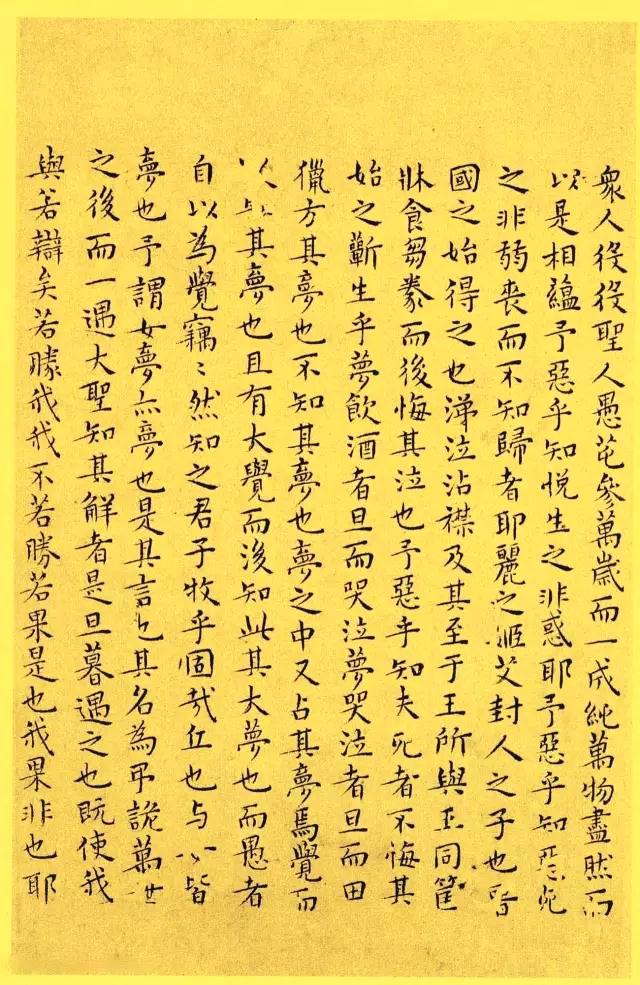 衆人役役聖人愚芚參萬歲而一成純萬物盡然而
以是相蘊予惡乎知悅生之非惑耶予惡乎知惡死
之非弱喪而不知歸者耶麗之姬艾封人之子也晉
國之始得之也涕泣沾襟及其至于王所與王同筐
牀食芻豢而後悔其泣也予惡乎知夫死者不悔其
始之蘄生乎夢飲酒者旦而哭泣夢哭泣者旦而田
獵方其夢也不知其夢也夢之中又占其夢焉覺而
其夢也且有大覺而後知此其大夢也而愚者
自以為覺竊〻然知之君子牧乎固哉丘也与皆
夢也予謂女夢亦夢也是其言也其名為弔詭萬世
之後而一遇大聖知其解者是旦暮遇之也既使我
與若辯矣若勝我我不若勝若果是也我果非也耶